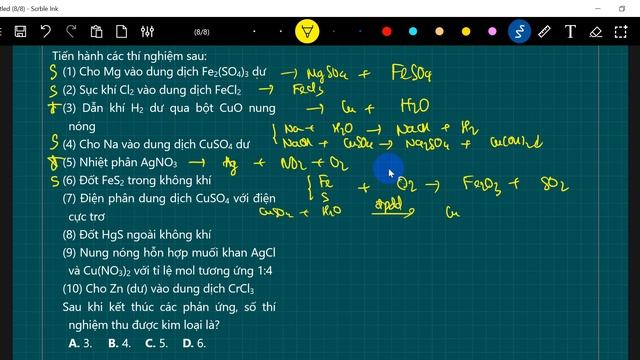 tled (8/8) - Scrble Ink
(8/8)
Tiến hành các thí nghiệm sau:
S (1) Cho Mg vào dung dịch Fe₂(SO₄)₃ dư → MgSO₄ + FeSO₄
S (2) Sục khí Cl₂ vào dung dịch FeCl₂ → FeCl₃
(3) Dẫn khí H₂ dư qua bột CuO nung → Cu + H₂O
nóng
Na + H₂O → NaOH + H₂
S (4) Cho Na vào dung dịch CuSO₄ dư NaOH + CuSO₄ → Na₂SO₄ + Cu(OH)₂↓
(5) Nhiệt phân AgNO₃ → Ag + NO₂ + O₂
S (6) Đốt FeS₂ trong không khí { Fe S + O₂ → Fe₂O₃ + SO₂
(7) Điện phân dung dịch CuSO₄ với điện
cực trơ CuSO₄ + H₂O đpdd → Cu
(8) Đốt HgS ngoài không khí
(9) Nung nóng hỗn hợp muối khan AgCl
và Cu(NO₃)₂ với tỉ lệ mol tương ứng 1:4
(10) Cho Zn (dư) vào dung dịch CrCl₃
Sau khi kết thúc các phản ứng, số thí
nghiệm thu được kim loại là?
A. 3. B. 4. C. 5. D. 6.